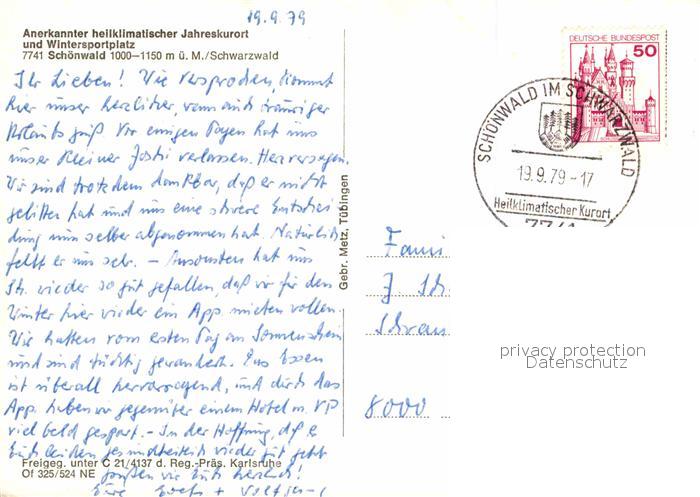 19.9.79
Anerkannter heilklimatischer Jahreskurort
und Wintersportplatz
7741 Schönwald 1000–1150 m ü. M./Schwarzwald
Ihr Lieben! Wie versprochen, kommt
hier unser herzlicher, wenn auch trauriger
Urlaubsgruß. Vor einigen Tagen hat uns
unser kleiner Joschi verlassen. Herzversagen.
Wir sind trotzdem dankbar, daß er nicht
gelitten hat und uns eine schwere Entschei
dung selber abgenommen hat. Natürlich
fehlt er uns sehr. – Ansonsten hat uns
Sch. wieder so gut gefallen, daß wir für den
Winter hier wieder ein App. mieten wollen.
Wir hatten vom ersten Tag an Sonnenschein
und sind tüchtig gewandert. Das Essen
ist überall hervorragend, und durch das
App. haben wir gegenüber einem Hotel m. VP
viel Geld gespart. – In der Hoffnung, daß es
Euch beiden gesundheitlich wieder gut geht
grüßen wir Euch herzlich!
Eure
Freigeg. unter C 21/4137 d. Reg.-Präs. Karlsruhe
Of 325/524 NE
Gebr. Metz, Tübingen
DEUTSCHE BUNDESPOST
50
SCHÖNWALD IM SCHWARZWALD
19.9.79-17
Heilklimatischer Kurort
Fami
J Sch.
8000
privacy protection
Datenschutz